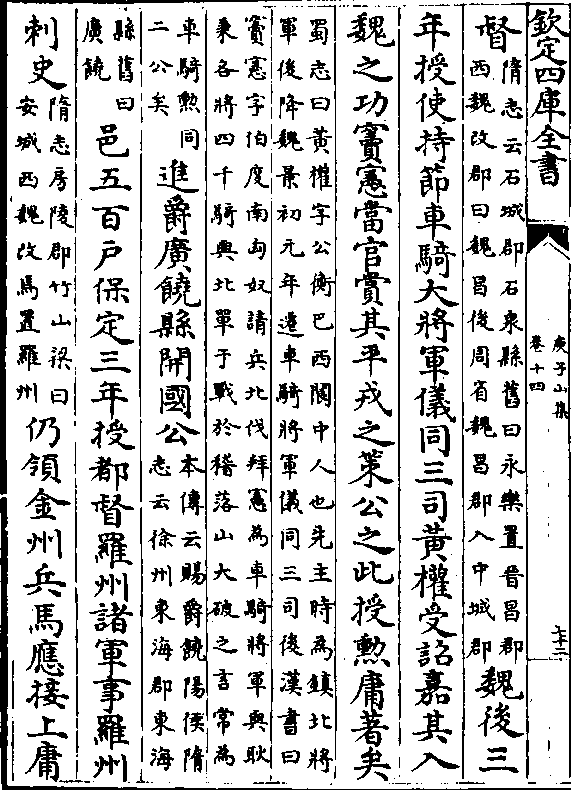 欽定四庫全書
庾子山集
卷十四
督
隋志云石城郡石泉縣舊曰永樂置晉昌郡
西魏改郡曰魏昌後周省魏昌郡入中城郡
魏後三
年授使持節車騎大將軍儀同三司黃權受詔嘉其入
魏之功竇憲當官賞其平戎之策公之此授勲庸著矣
蜀志曰黃權字公衡巴西閬中人也先主時為鎮北將
軍後降魏景初元年遷車騎將軍儀同三司後漢書曰
竇憲字伯度南匈奴請兵北伐拜憲為車騎將軍與耿
秉各將四千騎與北單于戰於稽落山大破之言常為
車騎勲同
二公矣
進爵廣饒縣開國公
本傳云賜爵饒陽侯隋
志云徐州東海郡東海
縣舊曰
廣饒
邑五百戶保定三年授都督羅州諸軍事羅州
刺史
隋志房陵郡竹山梁曰
安城西魏改焉置羅州
仍領金州兵馬應接上庸